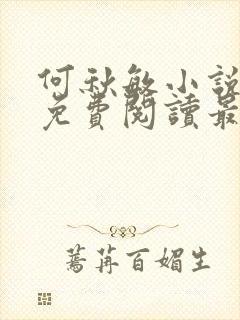 何秋敏小說
免費閱讀最
蔫苒百媚生